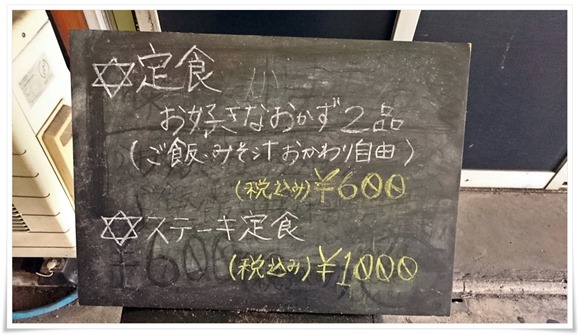 ✡定食
お好きなおかず2品
(ご飯・みそ汁おかわり自由)
(税込み)¥600
✡ステーキ定食
(税込み)¥1000
¥600